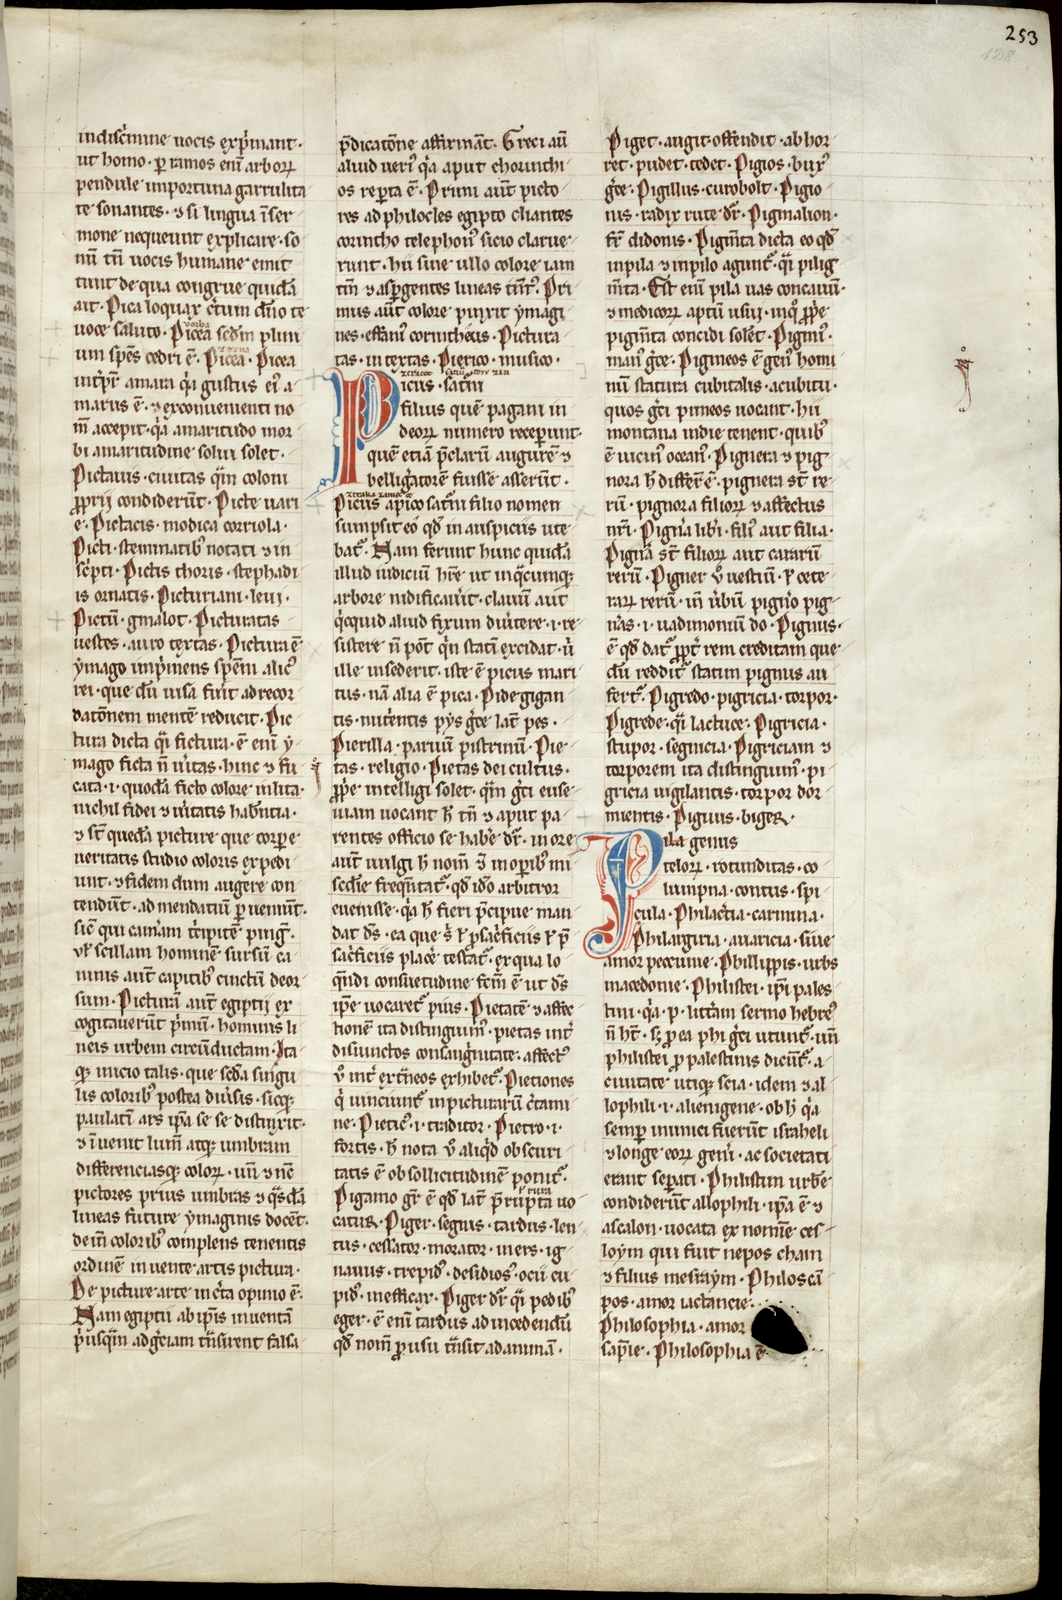 253
indiscͥmine uocis exp̍mant·
ut homo· ꝑ ramos eni᷒ arboꝝ
pendule importuna garrulita
te sonantes· ⁊ si lingua i᷒ ser
mone nequeunt explicare so
nu᷒ tn᷒ uocis humane emit
tunt de qua congrue quida᷒
ait· Pica loquax c̍tum dn᷒o te
uoce saluto· Picea sedm pluri
um spe᷒s cedri e᷒· Picea· Picea
amara q̍a gustus ei᷒ a
marus e᷒· ⁊ ex conuenienti no
m̅ accepit· q̍a amaritudo mor
bi amaritudine solui solet·
Pictauis· ciuitas qͣm coloni
ꝓprij condideru᷒t· Picte uari
e· Pictacis· modica corriola·
Picti· stemmatib᷒ notati ⁊ in
sc̍pti· Pictis thoris· stephadi
is ornatis· Picturiani· leui·
Pictu᷒· gmalot· Picturatas
uestes· auro textas· Pictura e᷒
ymago imp̍mens spe᷒m alic᷒
rei· que du᷒ uisa fu̍it ad recor
dato᷒nem mente᷒ reducit· Pic
tura dicta qͣi fictura· e᷒ eni᷒ y
mago ficta n᷒ u̍itas· hinc ⁊ fu
cata· i· quoda᷒ ficto colore inlita·
nichil fidei ⁊ u̍itatis habe᷒ntia·
⁊ st᷒ queda᷒ picture que corpe
ueritatis studio coloris expedi
unt· ⁊ fidem dum augere con
tendu᷒t· ad mendatiu᷒ ꝑuenu᷒nt·
sic᷒ qui t̍cipite᷒ ping᷒·
ul᷒ scillam homine᷒m sursu᷒ ca
ninis aut᷒ capitib᷒ cinctu᷒ deor
sum· Pictura᷒ aut᷒ egiptij ex
cogitaueru᷒t p̍mu᷒· hominis li
neis urbem circu᷒ductam· Ita
qꝫ inicio talis· que sc̅da singu
lis colorib᷒ postea diu̍sis· sicqꝫ
paulati᷒ ars ip᷒a se se distinxit·
⁊ i᷒uenit lum᷒ atqꝫ umbram
differenciasqꝫ coloꝝ· un᷒ ⁊ nc᷒
pictores prius umbras ⁊ qͣsda᷒
lineas future ymaginis docent·
dein᷒ colorib᷒ complens tenentis
ordine᷒ inuente artis pictura·
De picture arte inc̍ta opinio e᷒·
Nam egiptij ab ip᷒is inuenta᷒
p̍usqͣm ad gͣciam tnͣsirent falsa
p̅dicato᷒ne affirma᷒t· Greci au᷒
aliud ueri᷒ q̍a aput chorinthi
os rep̍ta e᷒· Primi aut᷒ picto
res ad philocles egipto cliantes
corintho telephon᷒ sicio clarue
runt· hii sine ullo colore iam
tm᷒ ⁊ asp̍gentes lineas Pri
mus aut᷒ colore pinxit ymagi
nes· effani᷒ corintheus· Pictura
tas· in textas· Pierico· musico·
Picus· saturni
filius que᷒ pagani in
deoꝝ numero receperunt·
que᷒ etia᷒ p̅claru᷒ augure᷒ ⁊
belligͣtore᷒ fuisse asseru᷒t·
Picus a pico saturni filio nomen
sumpsit eo qd᷒ in auspicijs ute
bat᷒· Nam ferunt hunc quida᷒
illud iudiciu᷒ hr᷒e ut in qͣcumqꝫ
arbore nidificau̍it· clauu᷒ aut
q̍cquid aliud fixum diu̍tere· i· re
sistere n᷒ pot᷒ qͥn stati᷒ excidat· u᷒
ille insederit· iste e᷒ picus mari
tus· na᷒ alia e᷒ pica· Pide gigan
tis· nitentis pys gͣce lat᷒ pes·
Pierilla· paruu᷒ pistrinu᷒· Pie
tas· religio· Pietas dei cultus·
ꝓp̍e intelligi solet· qͣm gͣci euse
uiam uocant h᷒ tn᷒ ⁊ aput pa
rentes officio se habe᷒ dr᷒· in ore
aut᷒ uulgi h᷒ nom᷒ in operib᷒ mi
sc̅die frequ̅ntat᷒· qd᷒ ido᷒ arbitror
euenisse· q̍a h᷒ fieri p̅cipue man
dat ds᷒· ea que ꝉ psac̍ficiis ꝉ p̅
sac̍ficiis place᷒ testat᷒· ex qua lo
quendi consuetudine fc᷒m e᷒ ut ds᷒
ip᷒e uocaret᷒ pius· Pietate᷒ ⁊ affec
tione᷒ ita distinguim᷒· pietas int̍
disiunctos consangͥnitate· affect᷒
ů int̍ extͣneos exhibet᷒· Pictiones
qͥ uinciunt᷒ in picturaru᷒ c̍tami
ne· Pietic᷒· i· traditor· Pietro· i·
fortis· h᷒ nota ů aliqͥd obscuri
tatis e᷒ ob sollicitudine᷒ ponit᷒·
Pigamo gr᷒ e᷒ qd᷒ lat᷒ p̅rupta uo
catur· Piger· segnis· tardus· len
tus· cessator· morator· iners· ig
nauus· trepid᷒· desidios᷒· ocii cu
pid᷒· inefficax· Piger dr᷒ qͣi pedib᷒
eger· e᷒ eni᷒ tardus ad incedendu᷒
qd᷒ nom᷒ ꝓ usu tnͣsit ad animu᷒·
Piget· angit· offendit· abhor
ret· pudet· tedet· Pigios· bux᷒
gͣce· Pigillus· curobolt· Pigio
nis· radix rute dr᷒· Pigmalion·
fr᷒ didonis· Pigm᷒ta dicta eo qd᷒
in pila ⁊ in pilo agunt᷒· qͣi pilig
m᷒ta· Est eni᷒ pila uas concauu᷒·
⁊ medicoꝝ aptu᷒ usui· in qͦ ꝓp̍e
pigm᷒ta concidi sole᷒t· Pigmi·
mani᷒ gͣce· Pigineos e᷒ gen᷒ homi
nu᷒ statura cubitalis· a cubitu·
quos gͣci pimeos uocant· hii
montana indie tenent· quib᷒
e᷒ uicin᷒ ocean᷒· Pignera ⁊ pig
nora h᷒ differe᷒· pignera st᷒ re
ru᷒· pignora filioꝝ ⁊ affectus
nr᷒i· Pign̍a lib̍i· fili᷒ aut filia·
Pign̍a st᷒ filioꝝ aut cararu᷒
reru᷒· Pigner ů uestiu᷒· ꝉ cete
raꝝ reru᷒· in u̍biu᷒ pign̍o pig
nͣas· i· uadimoniu᷒ do· Pignus·
e᷒ qd᷒ dat᷒ ꝓpt᷒ rem creditam que
du᷒ reddit᷒ statim pignus au
fert᷒· Pigredo· pigricia· torpor·
Pigrede· qͣi lactuce· Pigricia·
stupor· segnicia· Pigriciam ⁊
torporem ita distinguim᷒· pi
gricia uigilantis· torpor dor
mientis· Piguis· biger·
Pila genus
teloꝝ· rotunditas· co
lumpna· contus· spi
cula· Philact̍ia· carmina·
Philargiria· auaricia· siue
amor peccunie· Phillippis· urbs
macedonie· Philistei· ip᷒i pales
tini· q̍a· p· litt̍am sermo hebre᷒
n᷒ ht᷒· sꝫ ꝓ ea phi gͣci utunt᷒· un᷒
philistei ꝓ palestinis dicu᷒t᷒· a
ciuitate utiqꝫ scia· idem ⁊ al
lophili· i· alienigene· ob h᷒ q̍a
semp̲ inimici fuerunt israheli
⁊ longe eoꝝ gen̍i· ac societati
erant sep̲ati· Philistim urbe᷒
condideru᷒t allophili· ip᷒a e᷒ ⁊
ascalon· uocata ex nomi᷒e ces
loym qui fuit nepos cham
⁊ filius mesraym· Philosca᷒
pos· amor iactancie·
Philosophia· amor
sapi᷒e· Philosophia e᷒